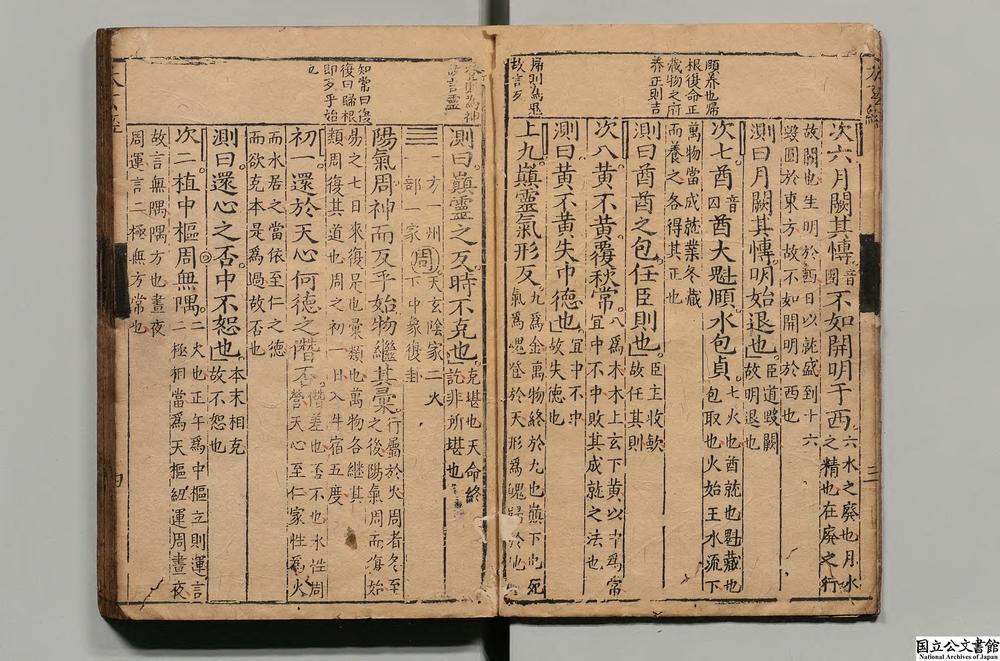 太玄經
三
頤養也歸
根復命正
藏物之府
養正則吉
故言反
次六月闕其慱音團不如開明于西六水之廢也月水
之精也在廢之行
故闕也生明於酉日以就盛到十六
毀圓於東方故不如開明於西也
測曰月闕其慱明始退也臣道毀闕
故明退也
次七酋音囚酋大魁頤水包貞七火也酋就也魁藏也
包取也火始王水流下
萬物當成就業冬藏
而養之各得其正也
測曰酋酋之包任臣則也臣主收歛
故任其則
次八黄不黄覆秋常八為木木上玄下黄以中為常
宜中不中敗其成就之法也
測曰黄不黄失中德也宜中不中
故失德也
上九巔靈氣形反九為金萬物終於九也巔下也死
氣為魂登於天形為魄歸於地
登則為神
故言靈
知常曰復
復曰歸根
即反乎始
也
測曰巔靈之反時不克也克堪也天命終
訖非所堪也
一方一州
一部一家
周
天玄陰家二火
下中象復卦
陽氣周神而反乎始物繼其彙行屬於火周者冬至
之後陽氣周而復始
易之七日來復是也彙類也萬物各繼其
類周復其道也周之初一日入牛宿五度
初一還於天心何德之僭否僭差也否不也水性周
營天心至仁家性為火
而水居之當依至仁之德
而欲克本是為過故否也
測曰還心之否中不恕也本末相克
故不恕也
次二植中樞周無隅二火也正午為中樞立則運言
二極相當為天樞紐運周晝夜
故言無隅隅方也晝夜
周運言二極無方常也
四
国立公文書館
National Archives of Japan